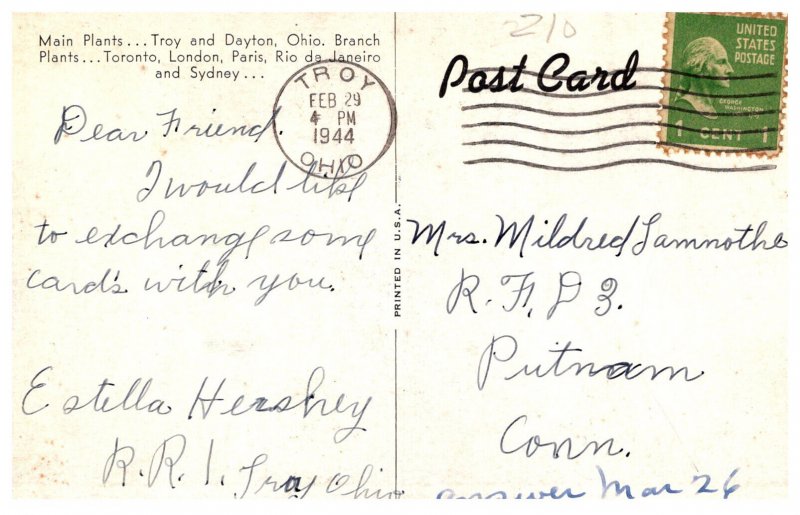 Main Plants... Troy and Dayton, Ohio. Branch
Plants... Toronto, London, Paris, Rio de Janeiro
and Sydney...
TROY
FEB 29
4 PM
1944
OHIO
Dear Friend.
I would like
to exchange some
card's with you.
Estella Hershey
R.R. 1. Troy Ohio
PRINTED IN U.S.A.
210
Post Card
UNITED
STATES
POSTAGE
GEORGE
WASHINGTON
1 CENT 1
Mrs. Mildred Lamnothe
R. F. D 3.
Putnam
Conn.
answer Mar 26